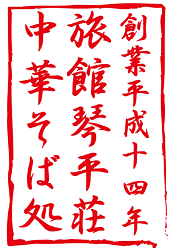 創業平成十四年
旅館琴平荘
中華そば処